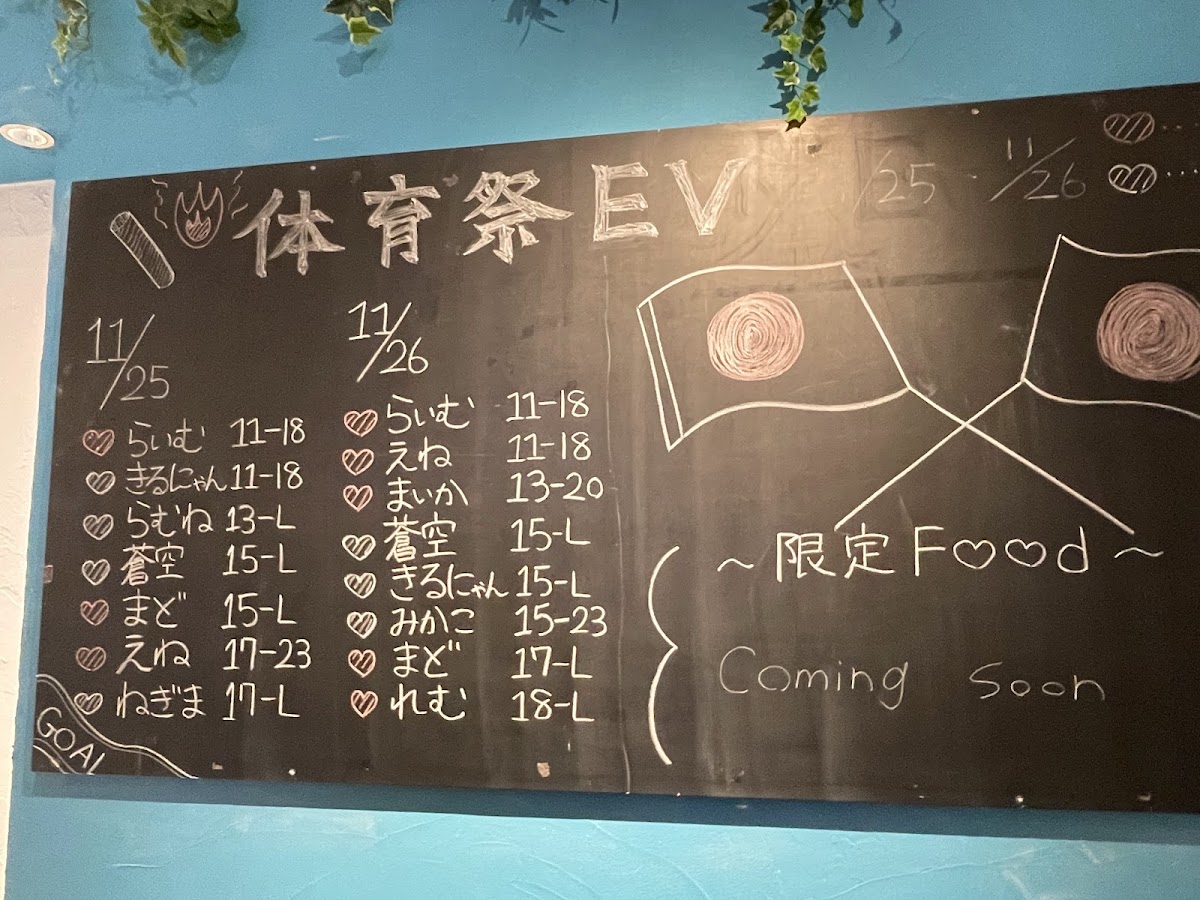 体育祭EV
/25 - 11/26
11/25
らいむ 11-18
きるにゃん 11-18
らむね 13-L
蒼空 15-L
まど 15-L
えね 17-23
ねぎま 17-L
GOAL
11/26
らいむ 11-18
えね 11-18
まいか 13-20
蒼空 15-L
きるにゃん 15-L
みかこ 15-23
まど 17-L
れむ 18-L
～限定F♡♡d～
Coming Soon